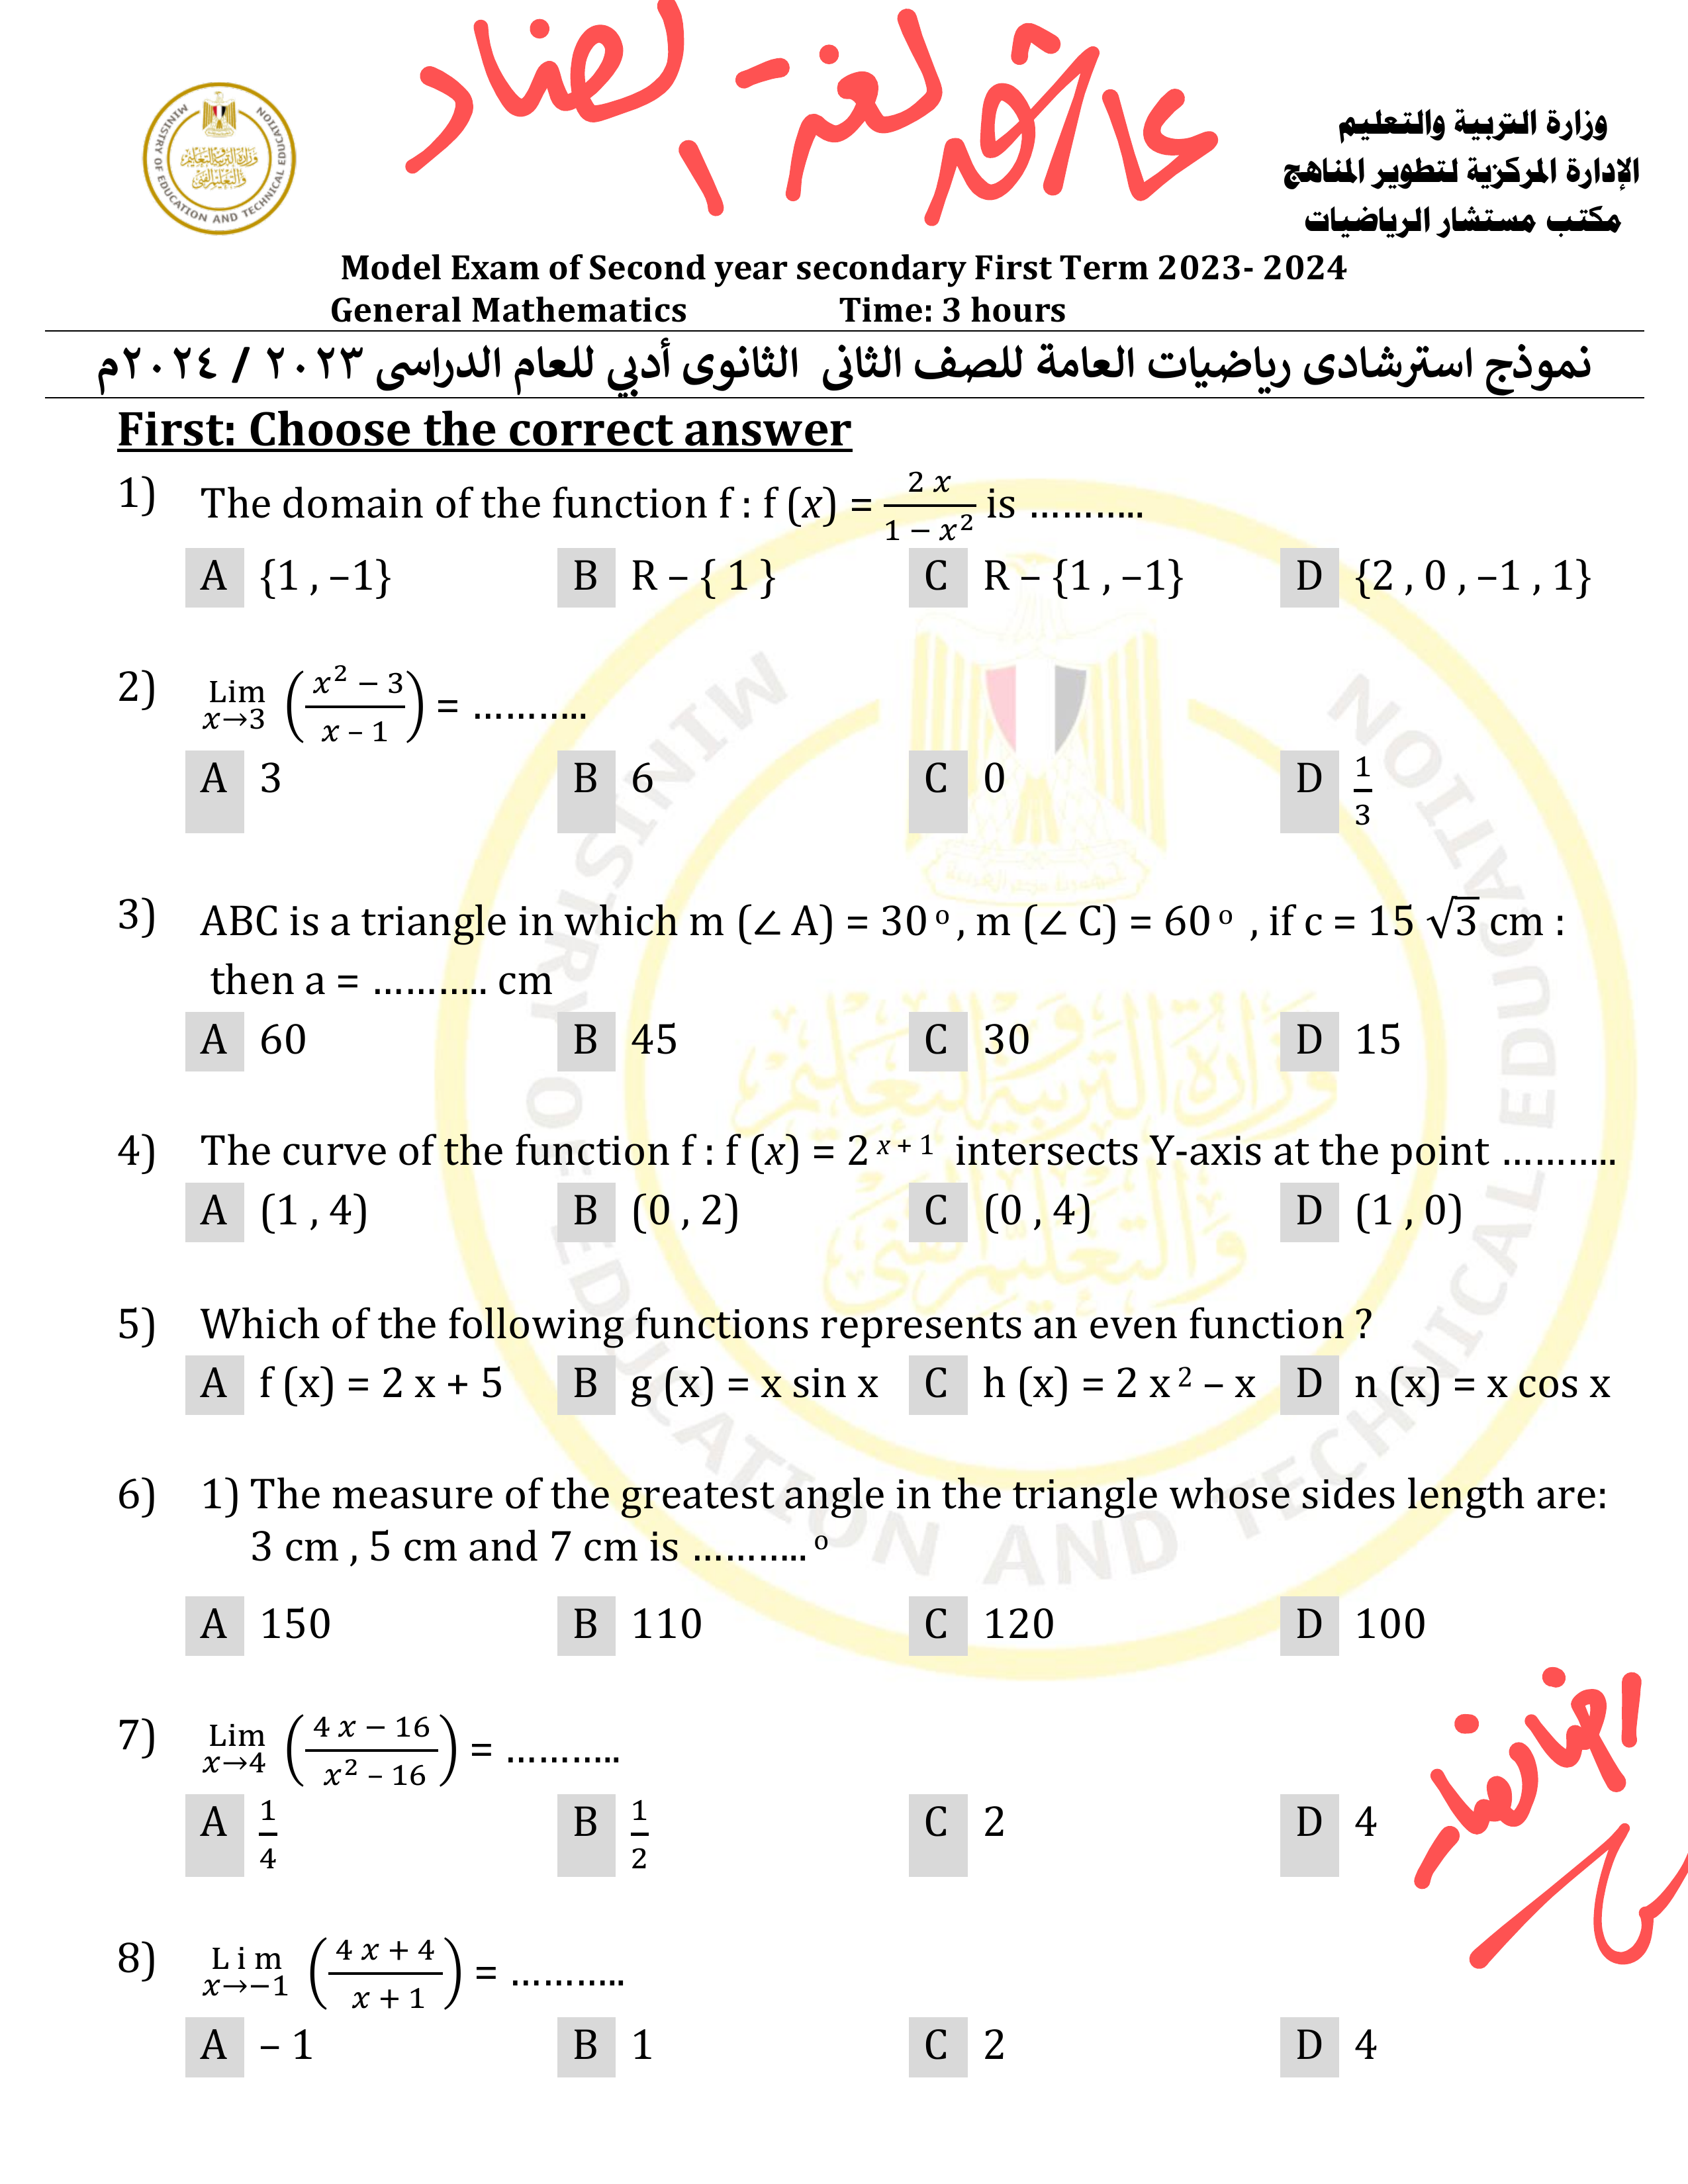 عاشق لغة الضاد
MINISTRY OF EDUCATION AND TECHNICAL EDUCATION
وزارة التربية والتعليم
والتعليم الفني
وزارة التربية والتعليم
الإدارة المركزية لتطوير المناهج
مكتب مستشار الرياضيات
Model Exam of Second year secondary First Term 2023- 2024
General Mathematics Time: 3 hours
نموذج استرشادى رياضيات العامة للصف الثانى الثانوى أدبي للعام الدراسى ٢٠٢٣ / ٢٠٢٤م
First: Choose the correct answer
1) The domain of the function f : f (x) = 2 x / 1 − x² is ………..
A {1 , –1} B R – { 1 } C R – {1 , –1} D {2 , 0 , –1 , 1}
2) Lim x→3 (x² − 3 / x – 1) = ………..
A 3 B 6 C 0 D 1/3
3) ABC is a triangle in which m (∠ A) = 30 º , m (∠ C) = 60 º , if c = 15 √3 cm :
then a = ……….. cm
A 60 B 45 C 30 D 15
4) The curve of the function f : f (x) = 2 ˣ ⁺ ¹ intersects Y-axis at the point ………..
A (1 , 4) B (0 , 2) C (0 , 4) D (1 , 0)
5) Which of the following functions represents an even function ?
A f (x) = 2 x + 5 B g (x) = x sin x C h (x) = 2 x ² – x D n (x) = x cos x
6) 1) The measure of the greatest angle in the triangle whose sides length are:
3 cm , 5 cm and 7 cm is ……….. º
A 150 B 110 C 120 D 100
7) Lim x→4 (4 x − 16 / x² – 16) = ………..
A 1/4 B 1/2 C 2 D 4
8) L i m x→−1 (4 x + 4 / x + 1) = ………..
A – 1 B 1 C 2 D 4
MINISTRY OF EDUCATION AND TECHNICAL EDUCATION
وزارة التربية والتعليم
والتعليم الفني